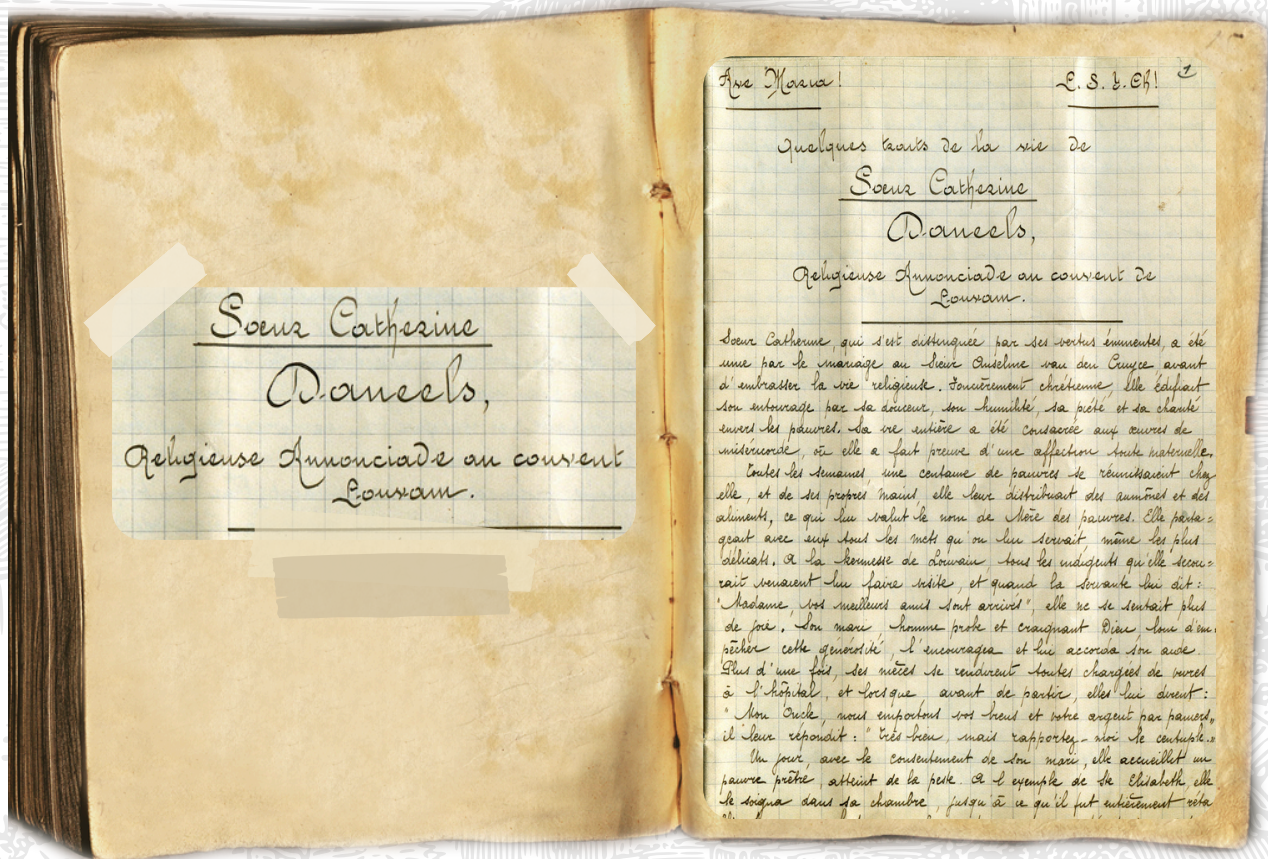 Sœur Catherine
Daneels,
Religieuse Annonciade au couvent
Louvain.
Ave Maria!
L. S. J. Ch!
1
Quelques traits de la vie de
Sœur Catherine
Daneels,
Religieuse Annonciade au couvent de
Louvain.
Sœur Catherine, qui s'est distinguée par ses vertus éminentes, a été
unie par le mariage au Sieur Anselme van den Cruyce avant
d'embrasser la vie religieuse. Foncièrement chrétienne, elle édifiait
son entourage par sa douceur, son humilité, sa piété et sa charité
envers les pauvres. Sa vie entière a été consacrée aux œuvres de
miséricorde, où elle a fait preuve d'une affection toute maternelle.
Toutes les semaines, une centaine de pauvres se réunissaient chez
elle, et de ses propres mains, elle leur distribuait des aumônes et des
aliments, ce qui lui valut le nom de Mère des pauvres. Elle parta=
geait avec eux tous les mets qu'on lui servait même les plus
délicats. A la kermesse de Louvain, tous les indigents qu'elle secou=
rait venaient lui faire visite, et quand la servante lui dit :
"Madame, vos meilleurs amis sont arrivés", elle ne se sentait plus
de joie. Son mari, homme probe et craignant Dieu loin d'em=
pêcher cette générosité, l'encouragea et lui accorda son aide.
Plus d'une fois, ses nièces se rendirent toutes chargées de vivres
à l'hôpital, et lorsque avant de partir, elles lui dirent :
"Mon Oncle, nous emportons vos biens et votre argent par paniers",
il leur répondit : "très bien, mais rapportez-moi le centuple."
Un jour, avec le consentement de son mari, elle accueillit un
pauvre prêtre, atteint de la peste. A l'exemple de Ste Elisabeth, elle
le soigna dans sa chambre, jusqu'à ce qu'il fut entièrement réta